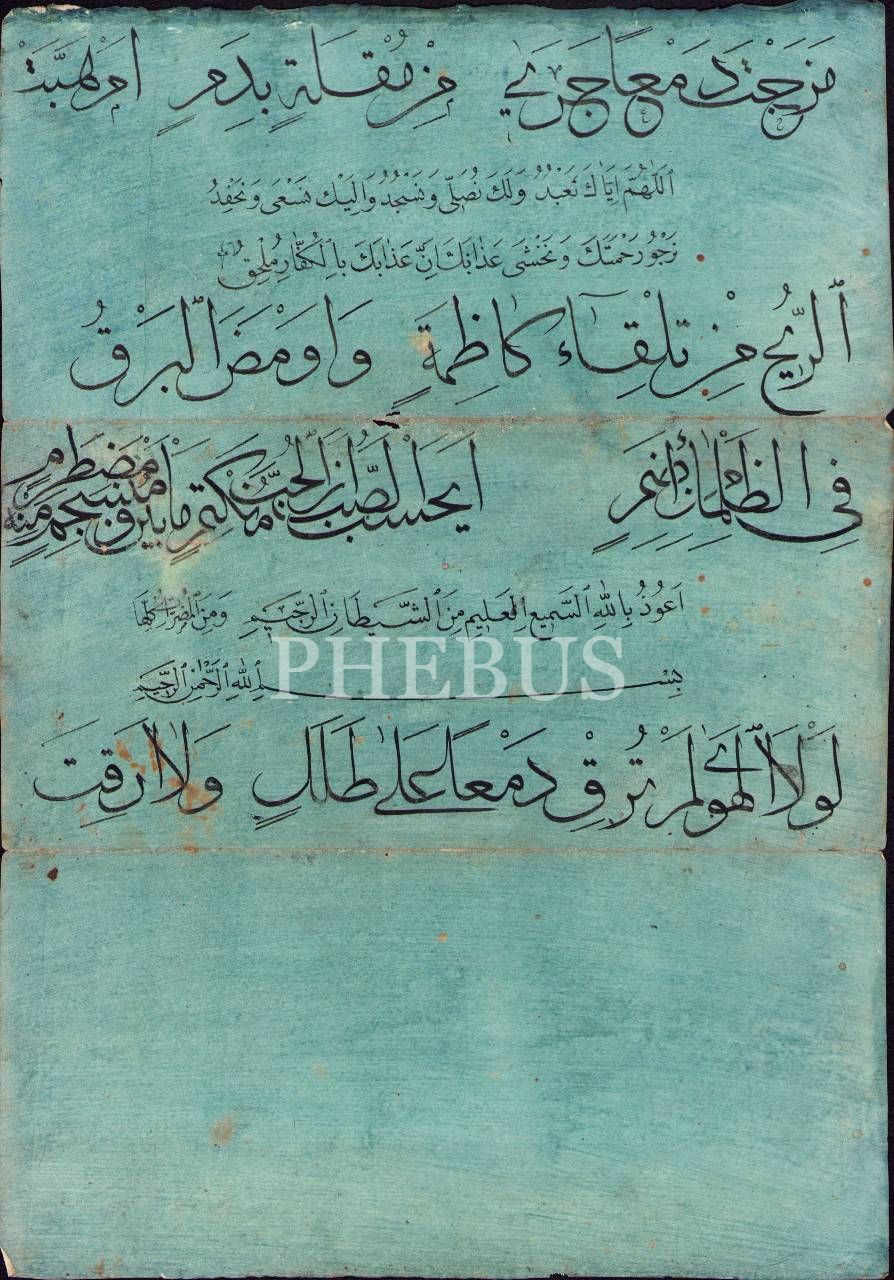 مَزَجْتَ دَمْعًا جَرٰى مِنْ مُقْلَةٍ بِدَمٍ اَمْ هَبَّتْ
اَللّٰهُمَّ اِيَّاكَ نَعْبُدُ وَلَكَ نُصَلّى وَنَسْجُدُ وَاِلَيْكَ نَسْعٰى وَنَحْفِدُ
نَرْجُو رَحْمَتَكَ وَنَخْشٰى عَذَابَكَ اِنَّ عَذَابَكَ بِالْكُفَّارِ مُلْحِقٌ
اَلرِّيحُ مِنْ تِلْقَاءِ كَاظِمَةٍ وَاَوْمَضَ الْبَرْقُ
فِى الظَّلْمَاءِ مِنْ اِضَمِ اَيَحْسَبُ الصَّبُّ اَنَّ الْحُبَّ مُنْكَتِمٌ مَا بَيْنَ مُنْسَجِمٍ مِنْهُ وَمُضْطَرِمِ
اَعُوذُ بِاللّٰهِ السَّمِيعِ الْعَلِيمِ مِنَ الشَّيْطَانِ الرَّجِيمِ وَمِنَ الْمُضِرَّاتِ كُلِّهَا
بِسْمِ اللّٰهِ الرَّحْمٰنِ الرَّحِيمِ
PHEBUS
لَوْلَا الْهَوٰى لَمْ تُرِقْ دَمْعًا عَلٰى طَلَلٍ وَلَا اَرِقْتَ